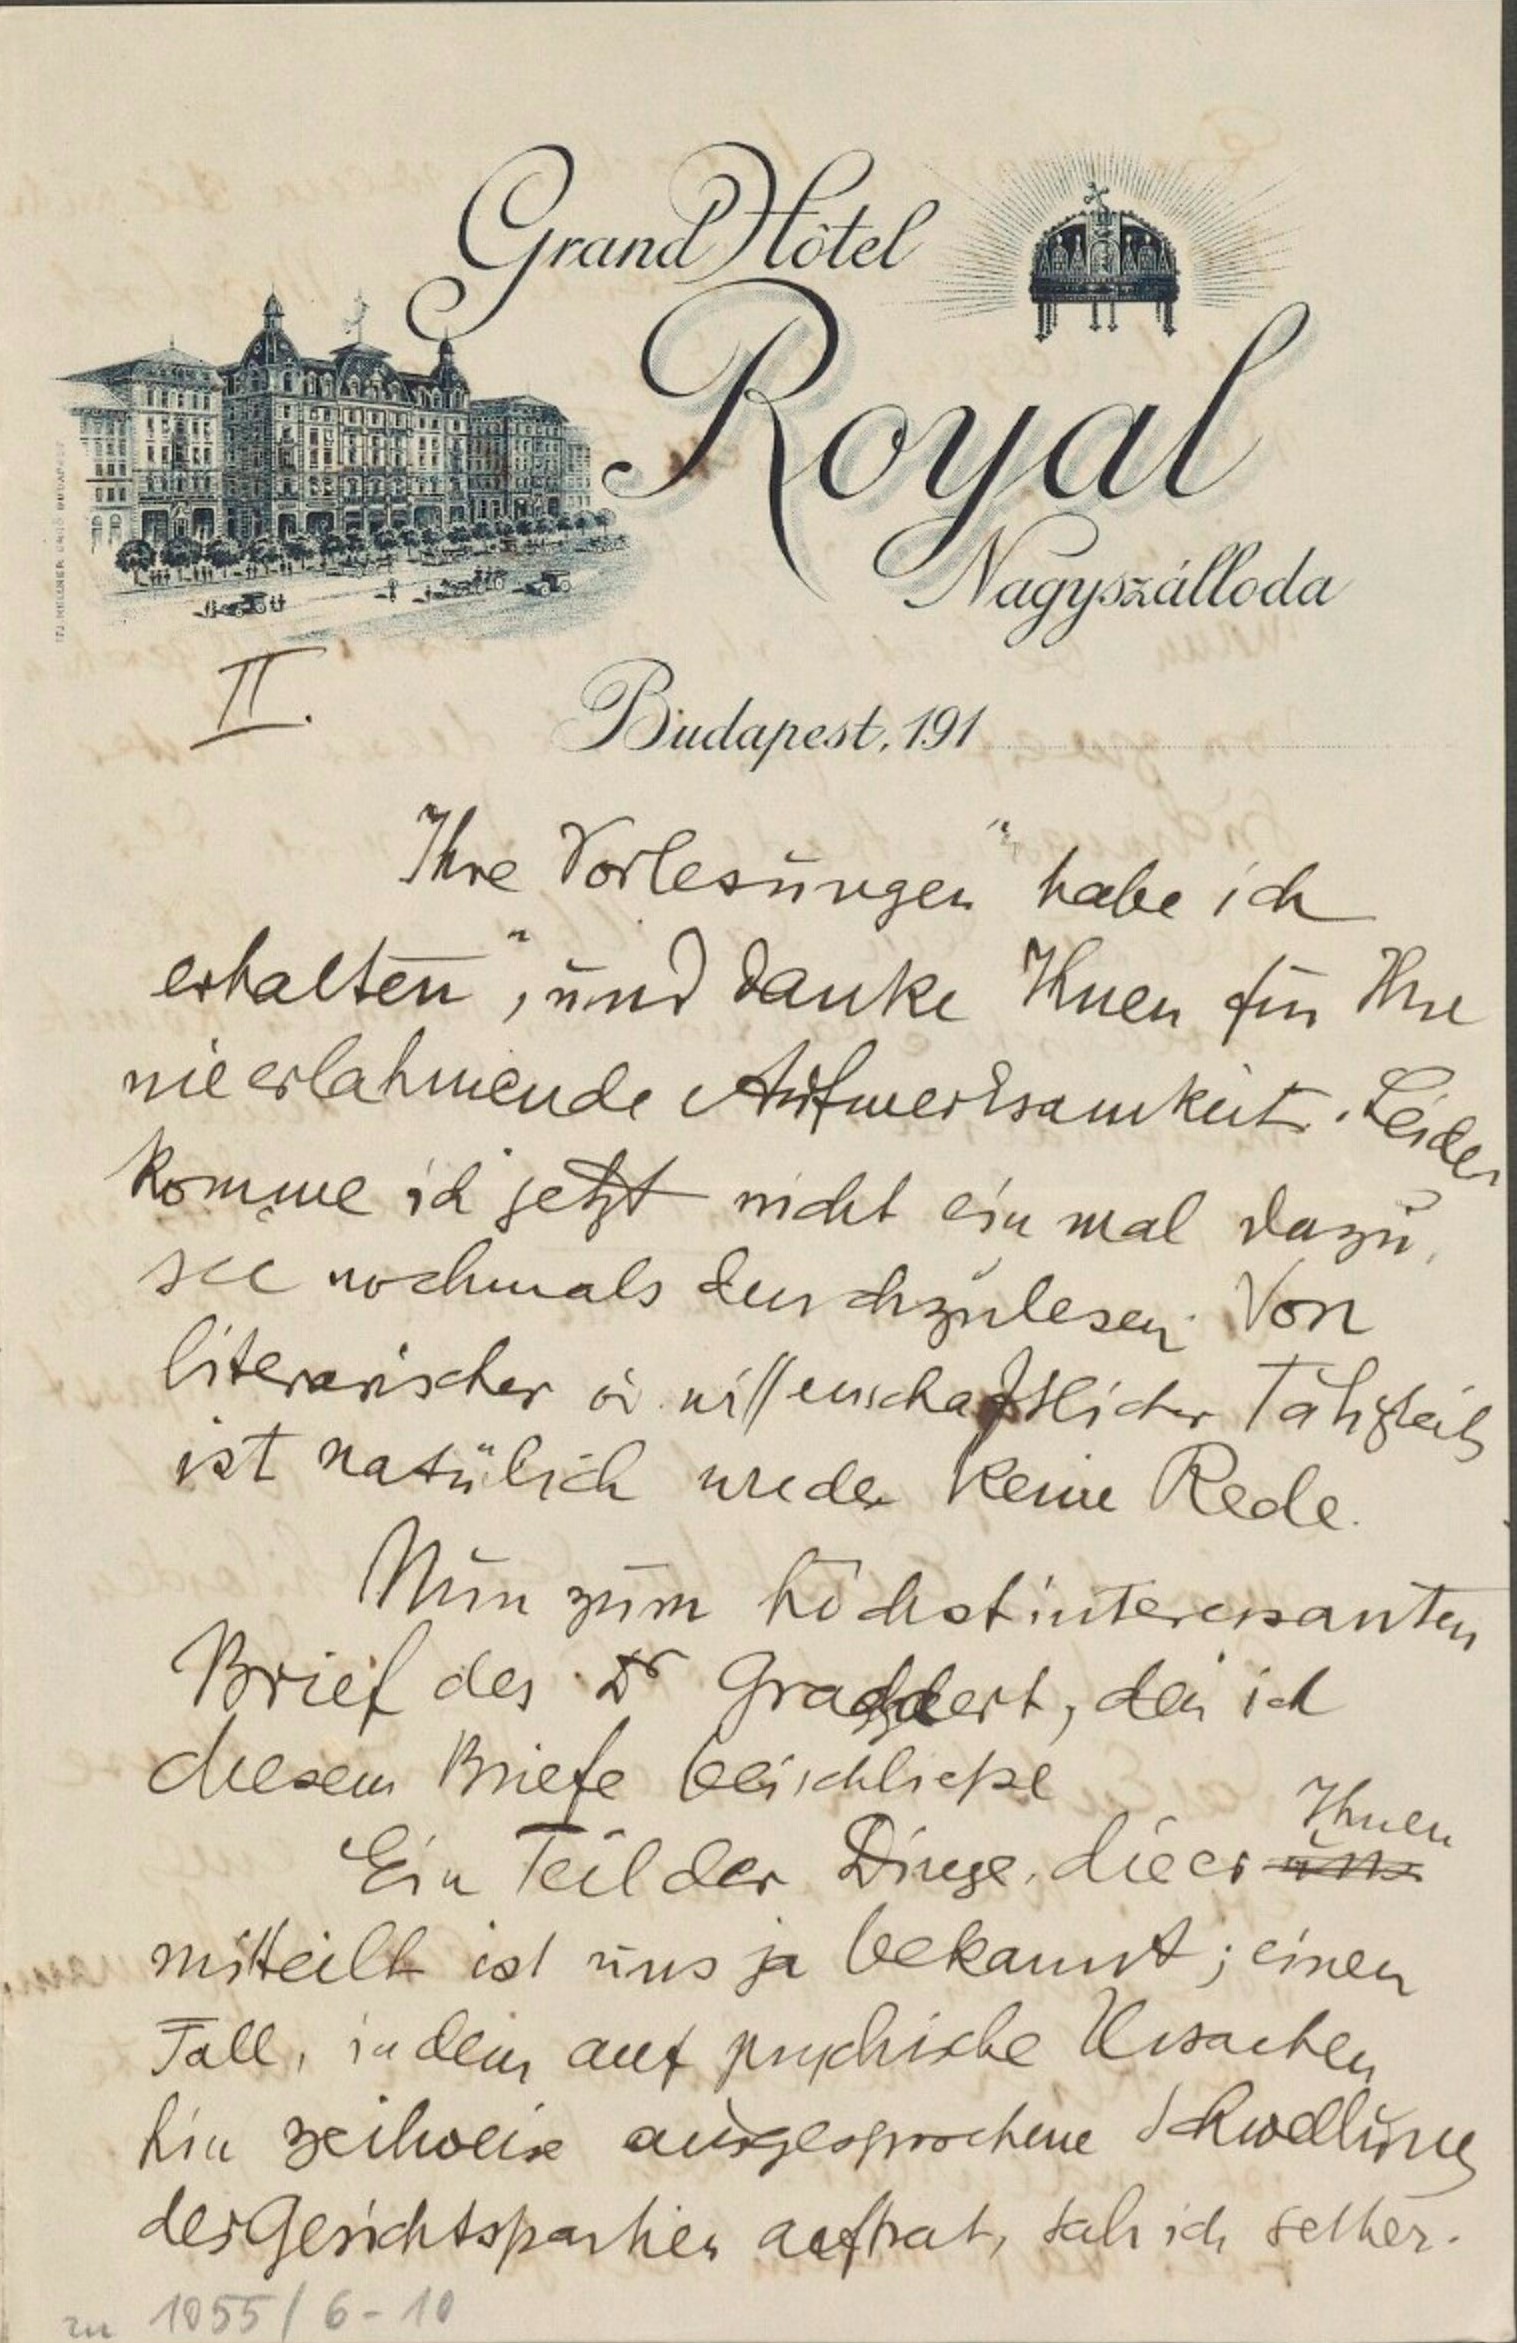 Grand Hôtel
Royal
Nagyszálloda
II.
Budapest, 191
Ihre Vorlesungen" habe ich
erhalten", und danke Ihnen für Ihre
nie erlahmende Aufmerksamkeit. Leider
komme ich jetzt nicht ein mal dazu,
sie nochmals durchzulesen. Von
literarischer u. wissenschaftlicher Tätigkeit
ist natürlich wieder keine Rede.
Nun zum höchst interessanten
Brief des Dr, den ich
diesem Briefe beischließe
Ein Teil der Dinge, die er uns Ihnen
mitteilt ist uns ja bekannt; einen
Fall, in dem auf psychische Ursachen
hin zeitweise ausgesprochene Schwellung
der Gesichtspartien auftrat, sah ich selber.
zu 1055/6-10